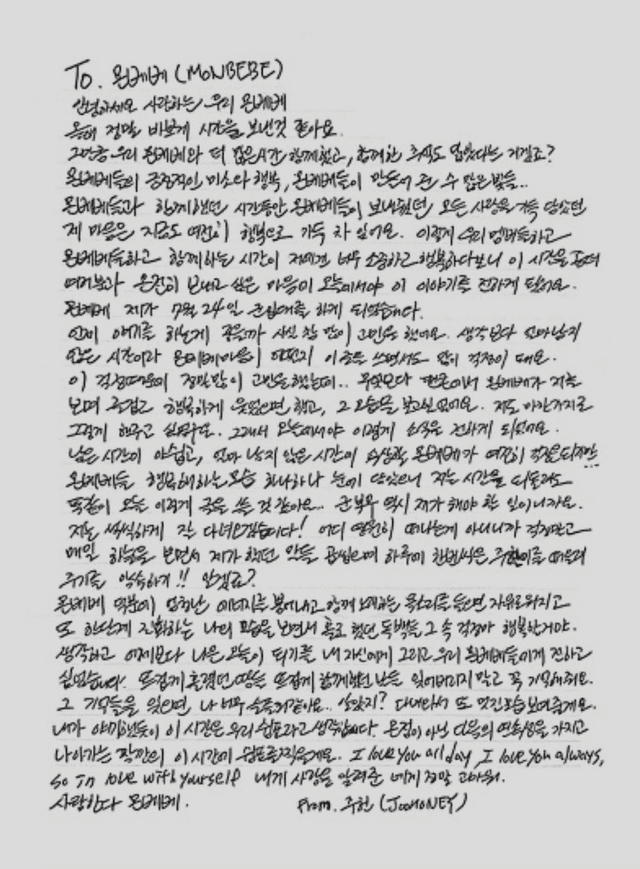 To. 몬베베 (MONBEBE)
안녕하세요 사랑하는 우리 몬베베
올해 정말 바쁘게 시간을 보낸것 같아요.
그만큼 우리 몬베베와 더 많은시간 함께했고, 함께한 추억도 많았다는 거겠죠?
몬베베들의 긍정적인 미소와 행복, 몬베베들이 만들어 준 수 많은 빛들..
몬베베들과 함께했던 시간동안 몬베베들이 보내줬던 모든 사랑을 가득 담았던
제 마음은 지금도 여전히 행복으로 가득 차 있어요. 이렇게 우리 멤버들하고
몬베베들하고 함께하는 시간이 저에겐 너무 소중하고 행복하다보니 이 시간을
여러분과 온전히 보내고 싶은 마음에 오늘에서야 이 이야기를 전하게 됐어요.
몬베베 제가 7월 24일 군입대를 하게 되었습니다.
이 얘기를 하는게 좋을까 사실 참 많이 고민을 했어요. 생각보다 얼마남지
않은 시간이라 몬베베마음이 어떨지 이 글을 쓰면서도 많이 걱정이 돼요.
이 걱정때문에 정말많이 고민을했는데.. 무엇보다 팬콘에서 몬베베가 저를
보며 즐겁고 행복하게 웃었으면 했고, 그 모습을 보고싶었어요. 저도 마찬가지로
그렇게 해주고 싶었구요. 그래서 오늘에서야 이렇게 소식을 전하게 되었어요.
남은 시간이 아쉽고, 얼마 남지 않은 시간에 속상할 몬베베가 여전히 걱정되지만..
몬베베들 행복해하는 모습 하나하나 눈에 담았으니 저는 시간을 되돌려도
똑같이 오늘 이렇게 글을 쓸 것 같아요.. 군복무 역시 제가 해야 할 일이니까요.
저는 씩씩하게 잘 다녀오겠습니다! 어디 영원히 떠나는게 아니니까 걱정말고
매일 하늘을 보면서 제가 했던 말들 곱씹으며 하루에 한번씩은 주헌이를 떠올려
주기를 약속하기!! 알겠죠?
몬베베 덕분에 엄청난 에너지를 뿜어내고 함께 노래하는 목소리를 들으면 자유로워지고
또 한단계 진화하는 나의 모습을 보면서 홀로 했던 독백들 그 속 걱정마 행복한거야.
생각하고 어제보다 나은 오늘이 되기를 내 자신에게 그리고 우리 몬베베들에게 전하고
싶었습니다. 뜨겁게 흘렸던 땀들 뜨겁게 함께했던 날들 잊어버리지 말고 꼭 기억해줘요.
그 기억들을 잊으면, 나 너무 슬플거같아요.. 알았지? 다녀와서 또 멋진모습 보여줄게요.
내가 얘기했듯이 이 시간은 우리 쉼표라고 생각합니다. 온점이 아닌 다음의 연속성을 가지고
나아가는 잠깐의 이 시간에 쉼표를찍을게요. I love you all day, I love you always,
so In love with yourself 내게 사랑을 알려준 네게 정말 고마워.
사랑한다 몬베베.
From. 주헌 (JOOHONEY)